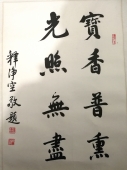 寶香普熏
光照無盡
釋淨空敬題